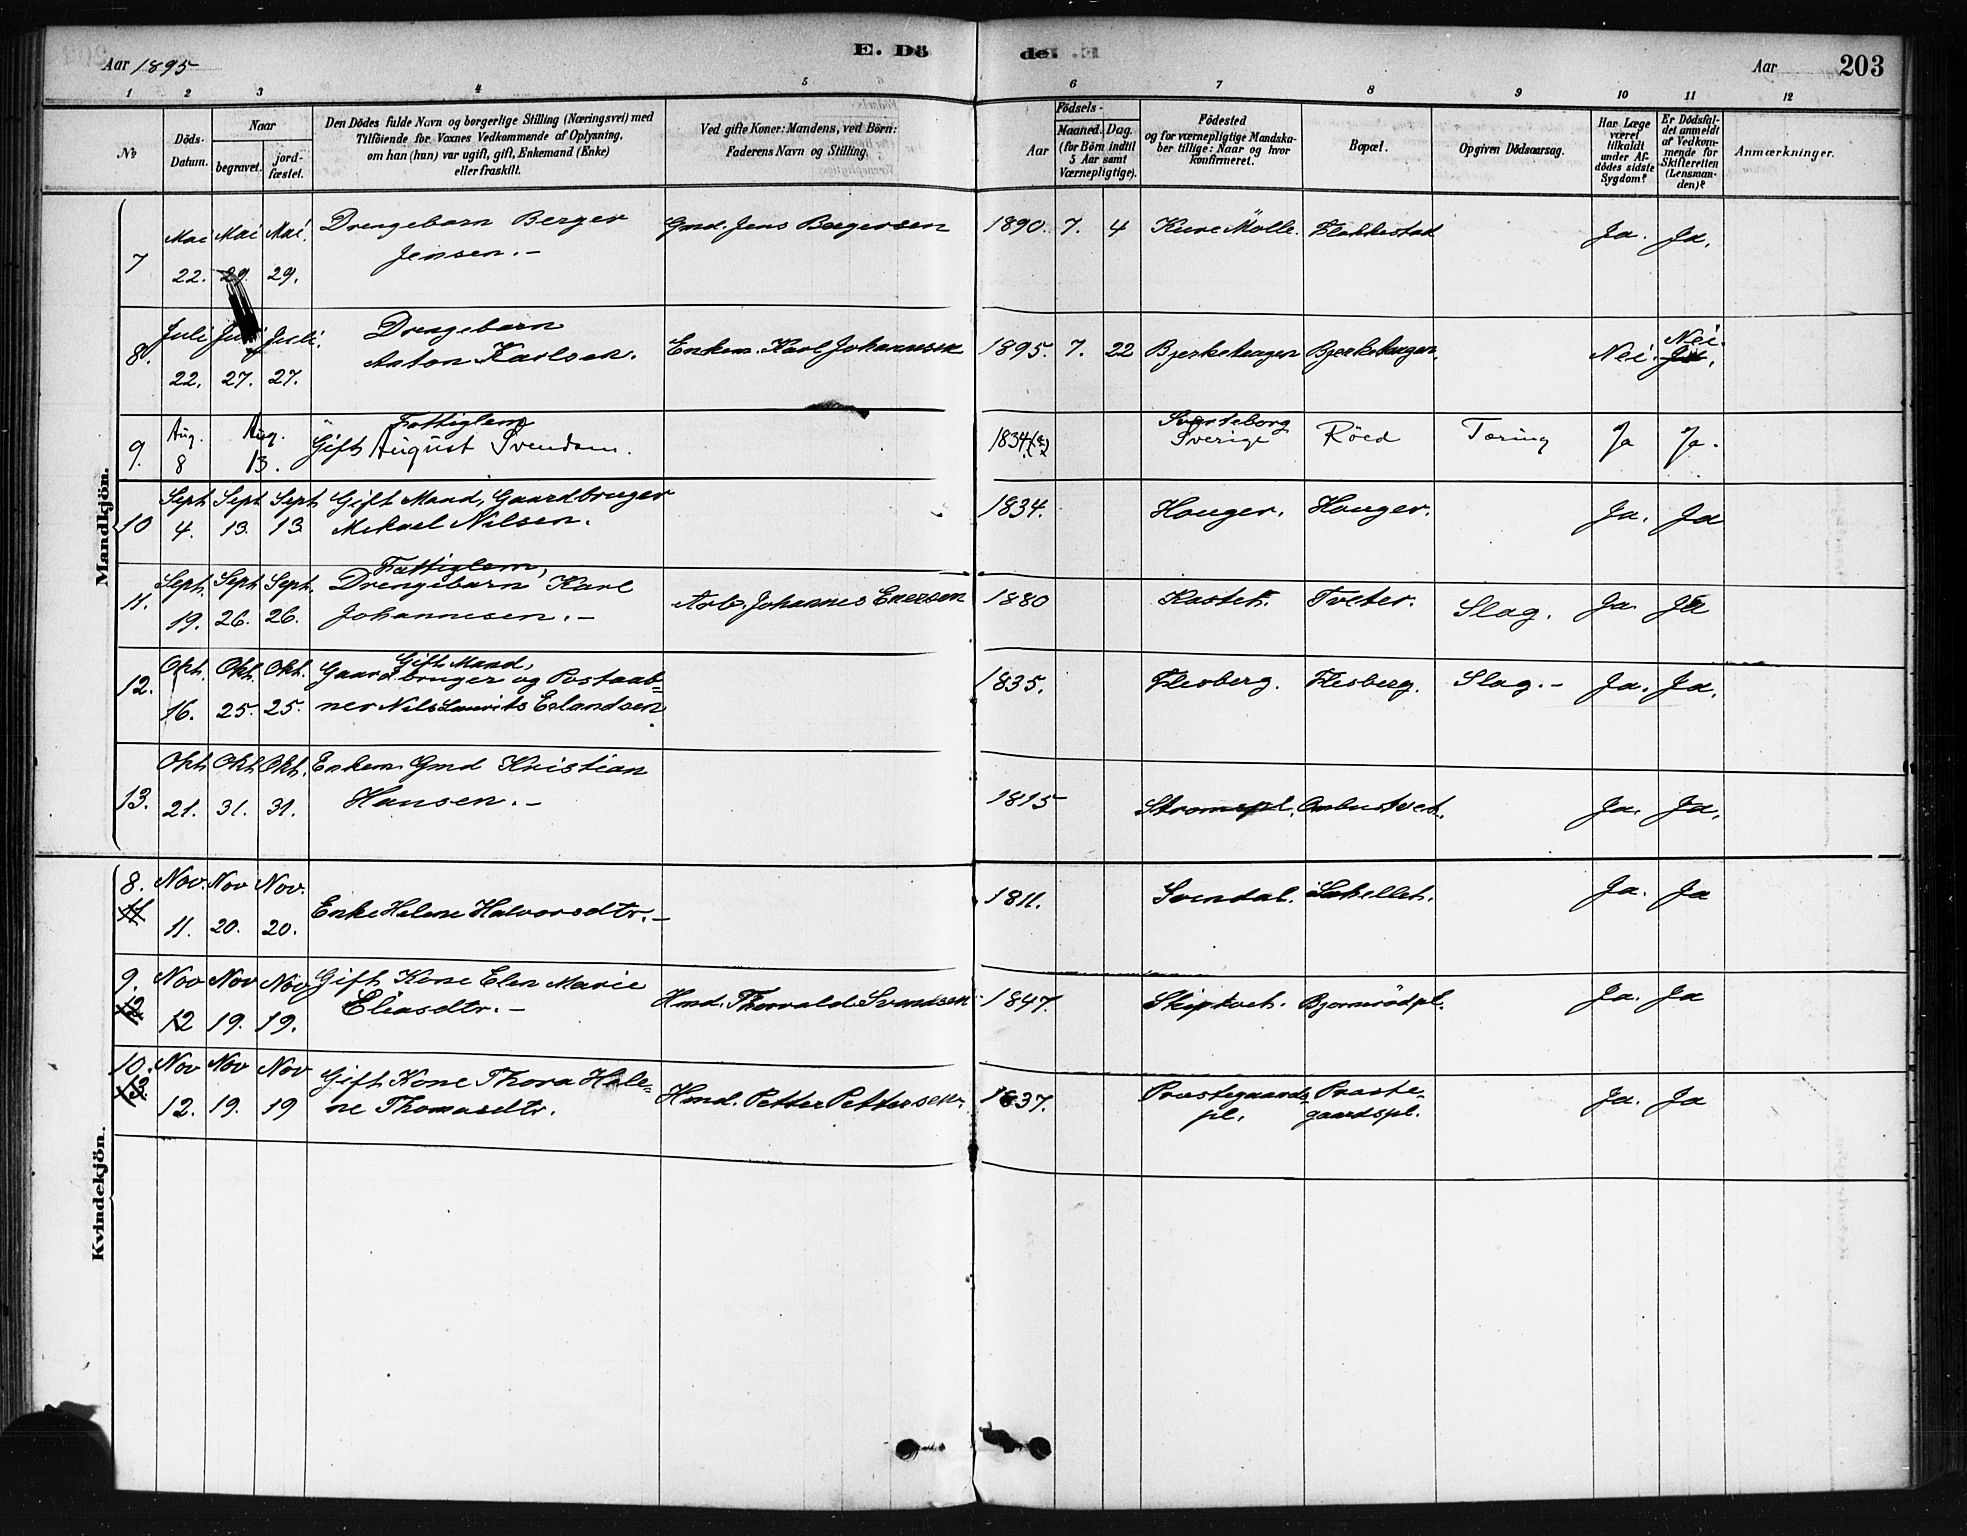 Aar 1895
E. Döde.
Aar
203
1 2 3 4 5 6 7 8 9 10 11 12
No
Döds-Datum.
Naar
begravet.
jord-fæstet.
Den Dödes fulde Navn og borgerlige Stilling (Næringsvei) med
Tilföiende for Voxnes Vedkommende af Oplysning,
om han (hun) var ugift, gift, Enkemand (Enke)
eller fraskilt.
Ved gifte Koner: Mandens, ved Börn:
Faderens Navn og Stilling.
Födsels-
Aar
Maaned. Dag.
(for Börn indtil
5 Aar samt
Værnepligtige).
Födested
og for værnepligtige Mandska-
ber tillige: Naar og hvor
konfirmeret.
Bopæl.
Opgiven Dödsaarsag.
Har Læge
været
tilkaldt
under Af-
dödes sidste
Sygdom?
Er Dödsfal-
det anmeldt
af Vedkom-
mende for
Skifteretten
(Lensman-
den)?
Anmærkninger.
Mandkjön.
7 Mai 22. Mai 29. Mai 29. Drengebarn Berger
Jensen. – Gmd. Jens Bergersen 1890. 7. 4 Kure Mölle. Flakkestad Ja. Ja.
8. Juli 22. Juli 27. Juli 27. Drengebarn
Anton Karlsen. Enkem. Karl Johannesen 1895. 7. 22 Bjerkehaugen Bjerkehaugen. Nei. Nei. Ja.
9. Aug. 8 Aug. 13. Fattiglem
Gift August Svendsen. 1834(?) Svarteborg
Sverige Röed Tæring Ja Ja.
10 Sept 4. Sept 13. Sept 13 Gift Mand, Gaardbruger
Mikael Nilsen. 1834. Houger. Houger. Ja. Ja
11. Sept. 19. Sept 26. Sept. 26. Fattiglem,
Drengebarn Karl
Johannesen. – Arb. Johannes Enersen 1880 Kastet. Tveter. Slag. Ja. Ja
12. Okt. 16. Okt. 25. Okt. 25. Gift Mand,
Gaardbruger og Postaab=
ner Nils Laurits Erlandsen 1835. Flesberg. Flesberg. Slag. – Ja. Ja.
13. Okt. 21. Okt. 31. Okt. 31. Enkem. Gmd Kristian
Hansen. – 1815 Stromspl. Ombustvedt. Ja. Ja.
Kvindekjön.
8. 11 Nov. 11. Nov 20. Nov. 20. Enke Helene Halvorsdtr. – 1811. Svendal. Ja. Ja
9. 12 Nov 12 Nov 19. Nov 19. Gift Kone Elen Marie
Eliasdtr. – Hmd. Thorvald Svendsen 1847. Skiptvet. Bjørnerödpl. Ja. Ja
10. 13. Nov 12. Nov 19. Nov 19 Gift Kone Thora Hele=
ne Thomasdtr. Hmd. Petter Pettersen. 1837. Præstegaards=
pl. Præste=
gaardspl. Ja. Ja